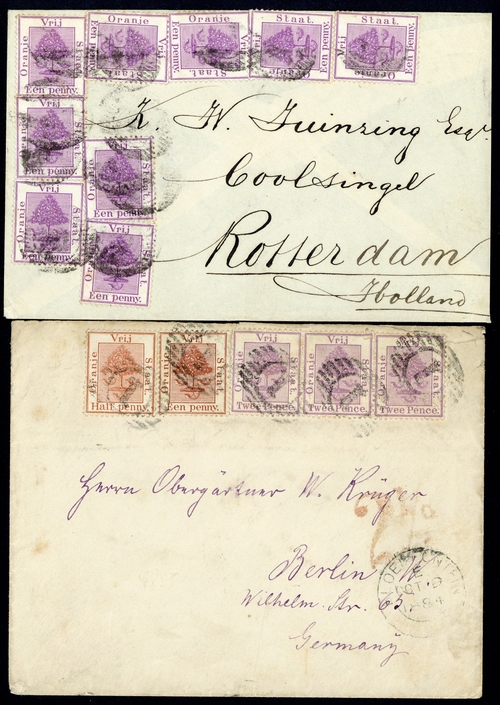 Vrij Oranje Staat. Een penny.
Vrij Oranje Staat. Een penny.
Vrij Oranje Staat. Een penny.
Vrij Oranje Staat. Een penny.
Vrij Oranje Staat. Een penny.
Vrij Oranje Staat. Een penny.
Vrij Oranje Staat. Een penny.
Vrij Oranje Staat. Een penny.
Vrij Oranje Staat. Een penny.
K. W. Tuinzing Esqr.
Coolsingel
Rotterdam
Holland
Vrij Oranje Staat. Half penny.
Vrij Oranje Staat. Een penny.
Vrij Oranje Staat. Twee Pence.
Vrij Oranje Staat. Twee Pence.
Vrij Oranje Staat. Twee Pence.
Herrn Obergärtner W. Krüger
Berlin W.
Wilhelm. Str. 65
Germany